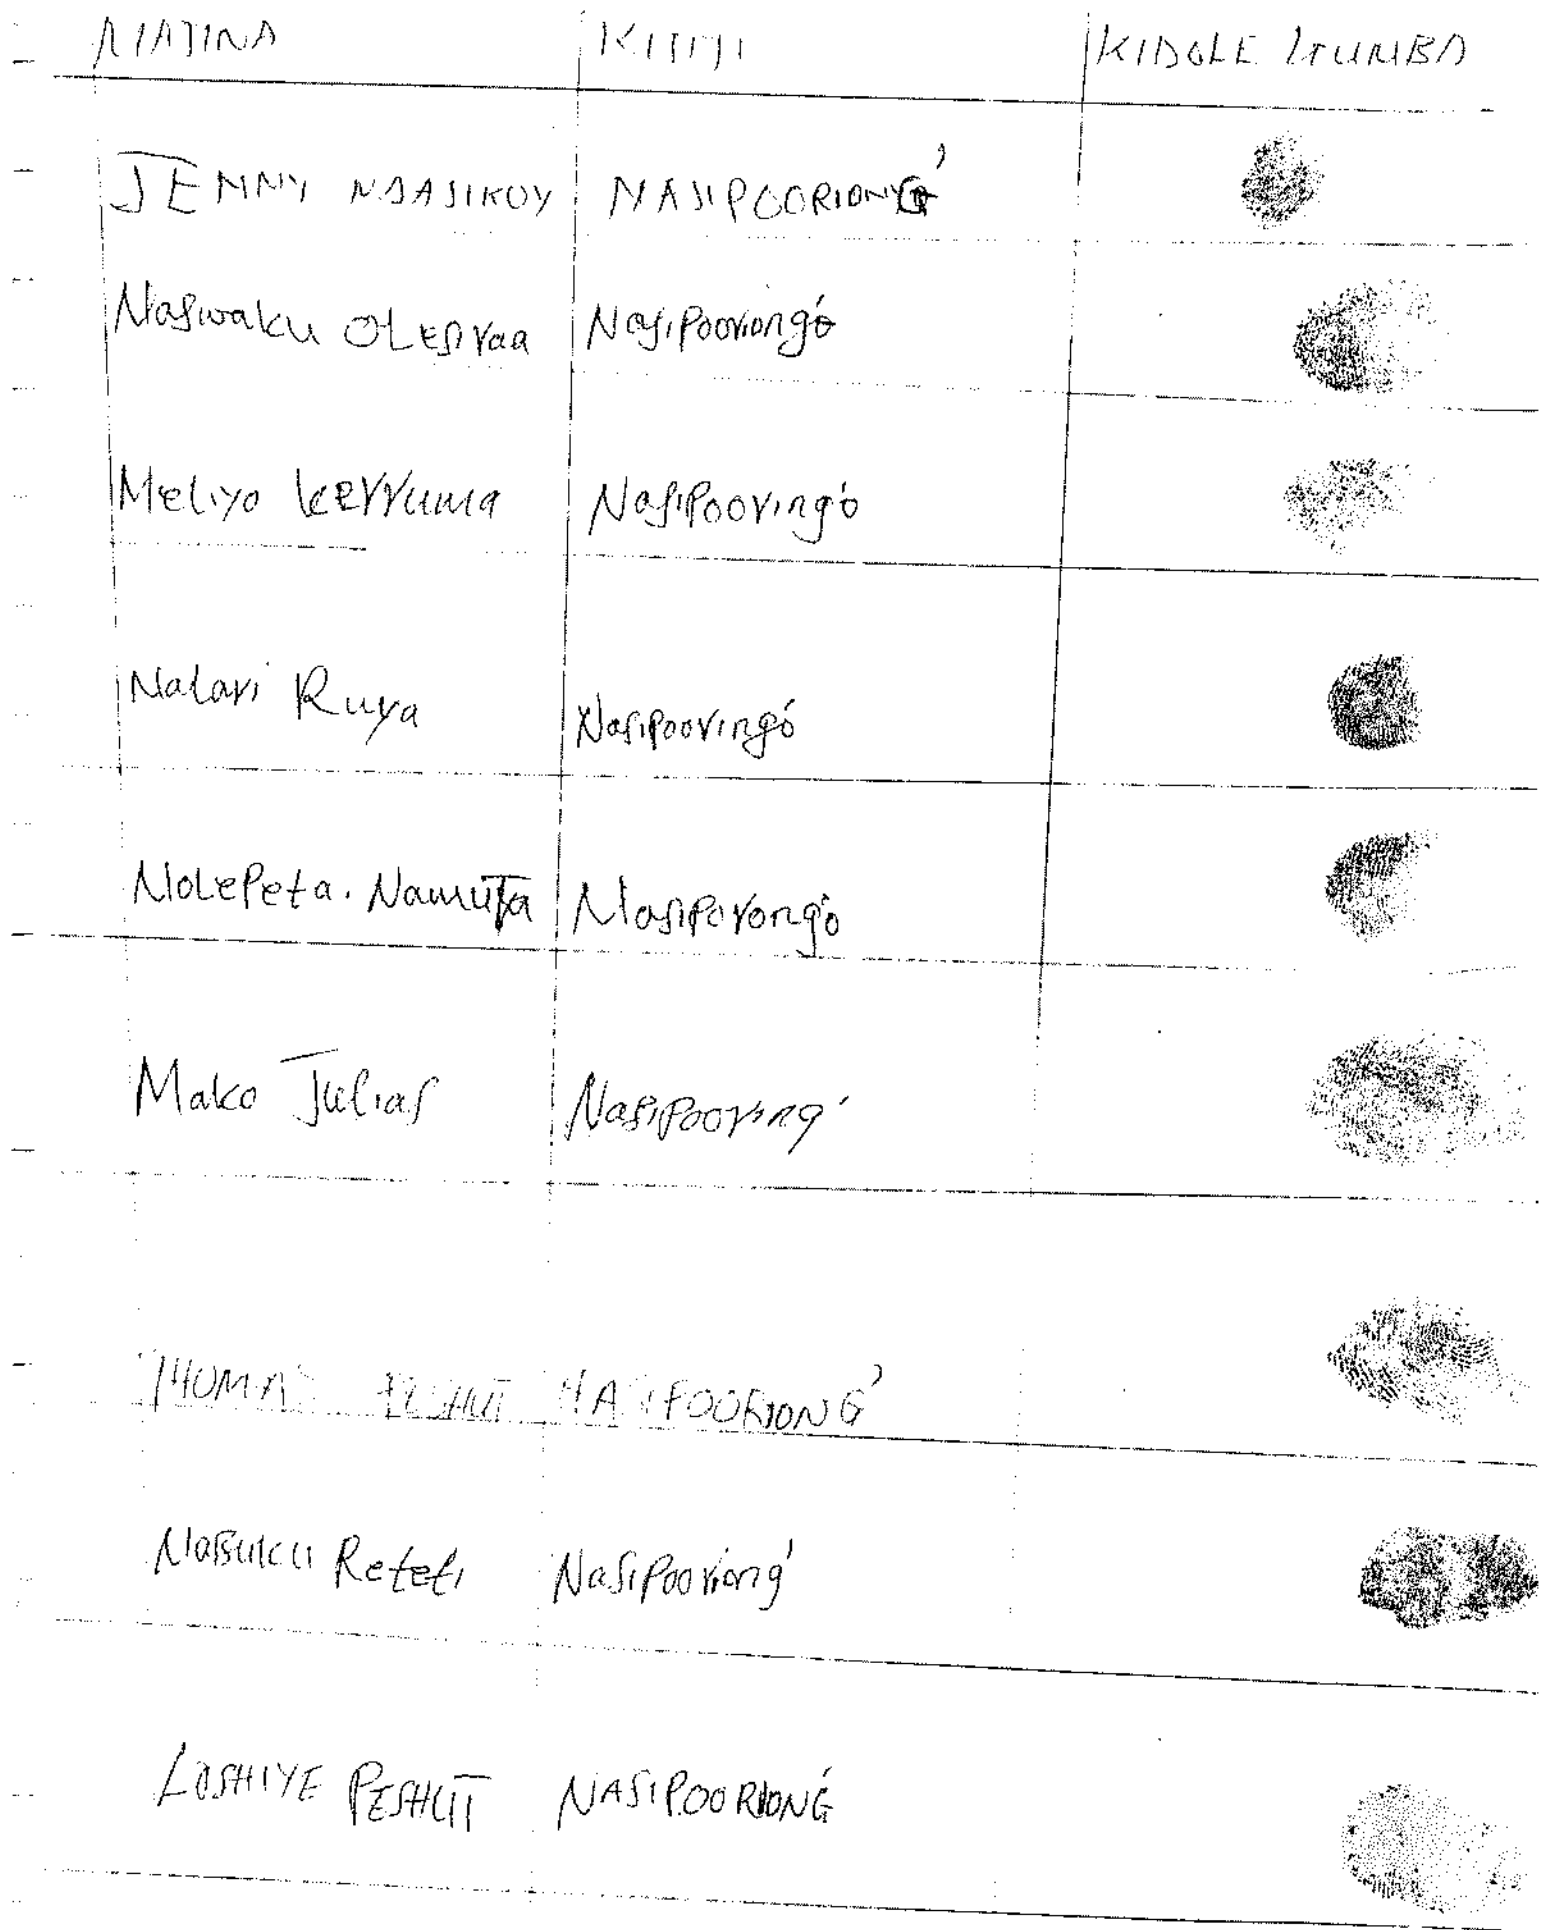 MAJINA KIJIJI KIDOLE GUMBA
JEMNY NDASIKOY NASIPOORIONG'
Naswaku OLesiraa Nasipooriongó
Meliyo kerruma Nasipooringó
Natari Ruya Nasipooringó
NoLepeta. Namuta Nasiporongó
Mako Julias Nasipooring'
NASIPOORIONG'
Nabulcu Reteti Nasipooriong'
LOSHIYE PESHUT NASIPOORIONG'